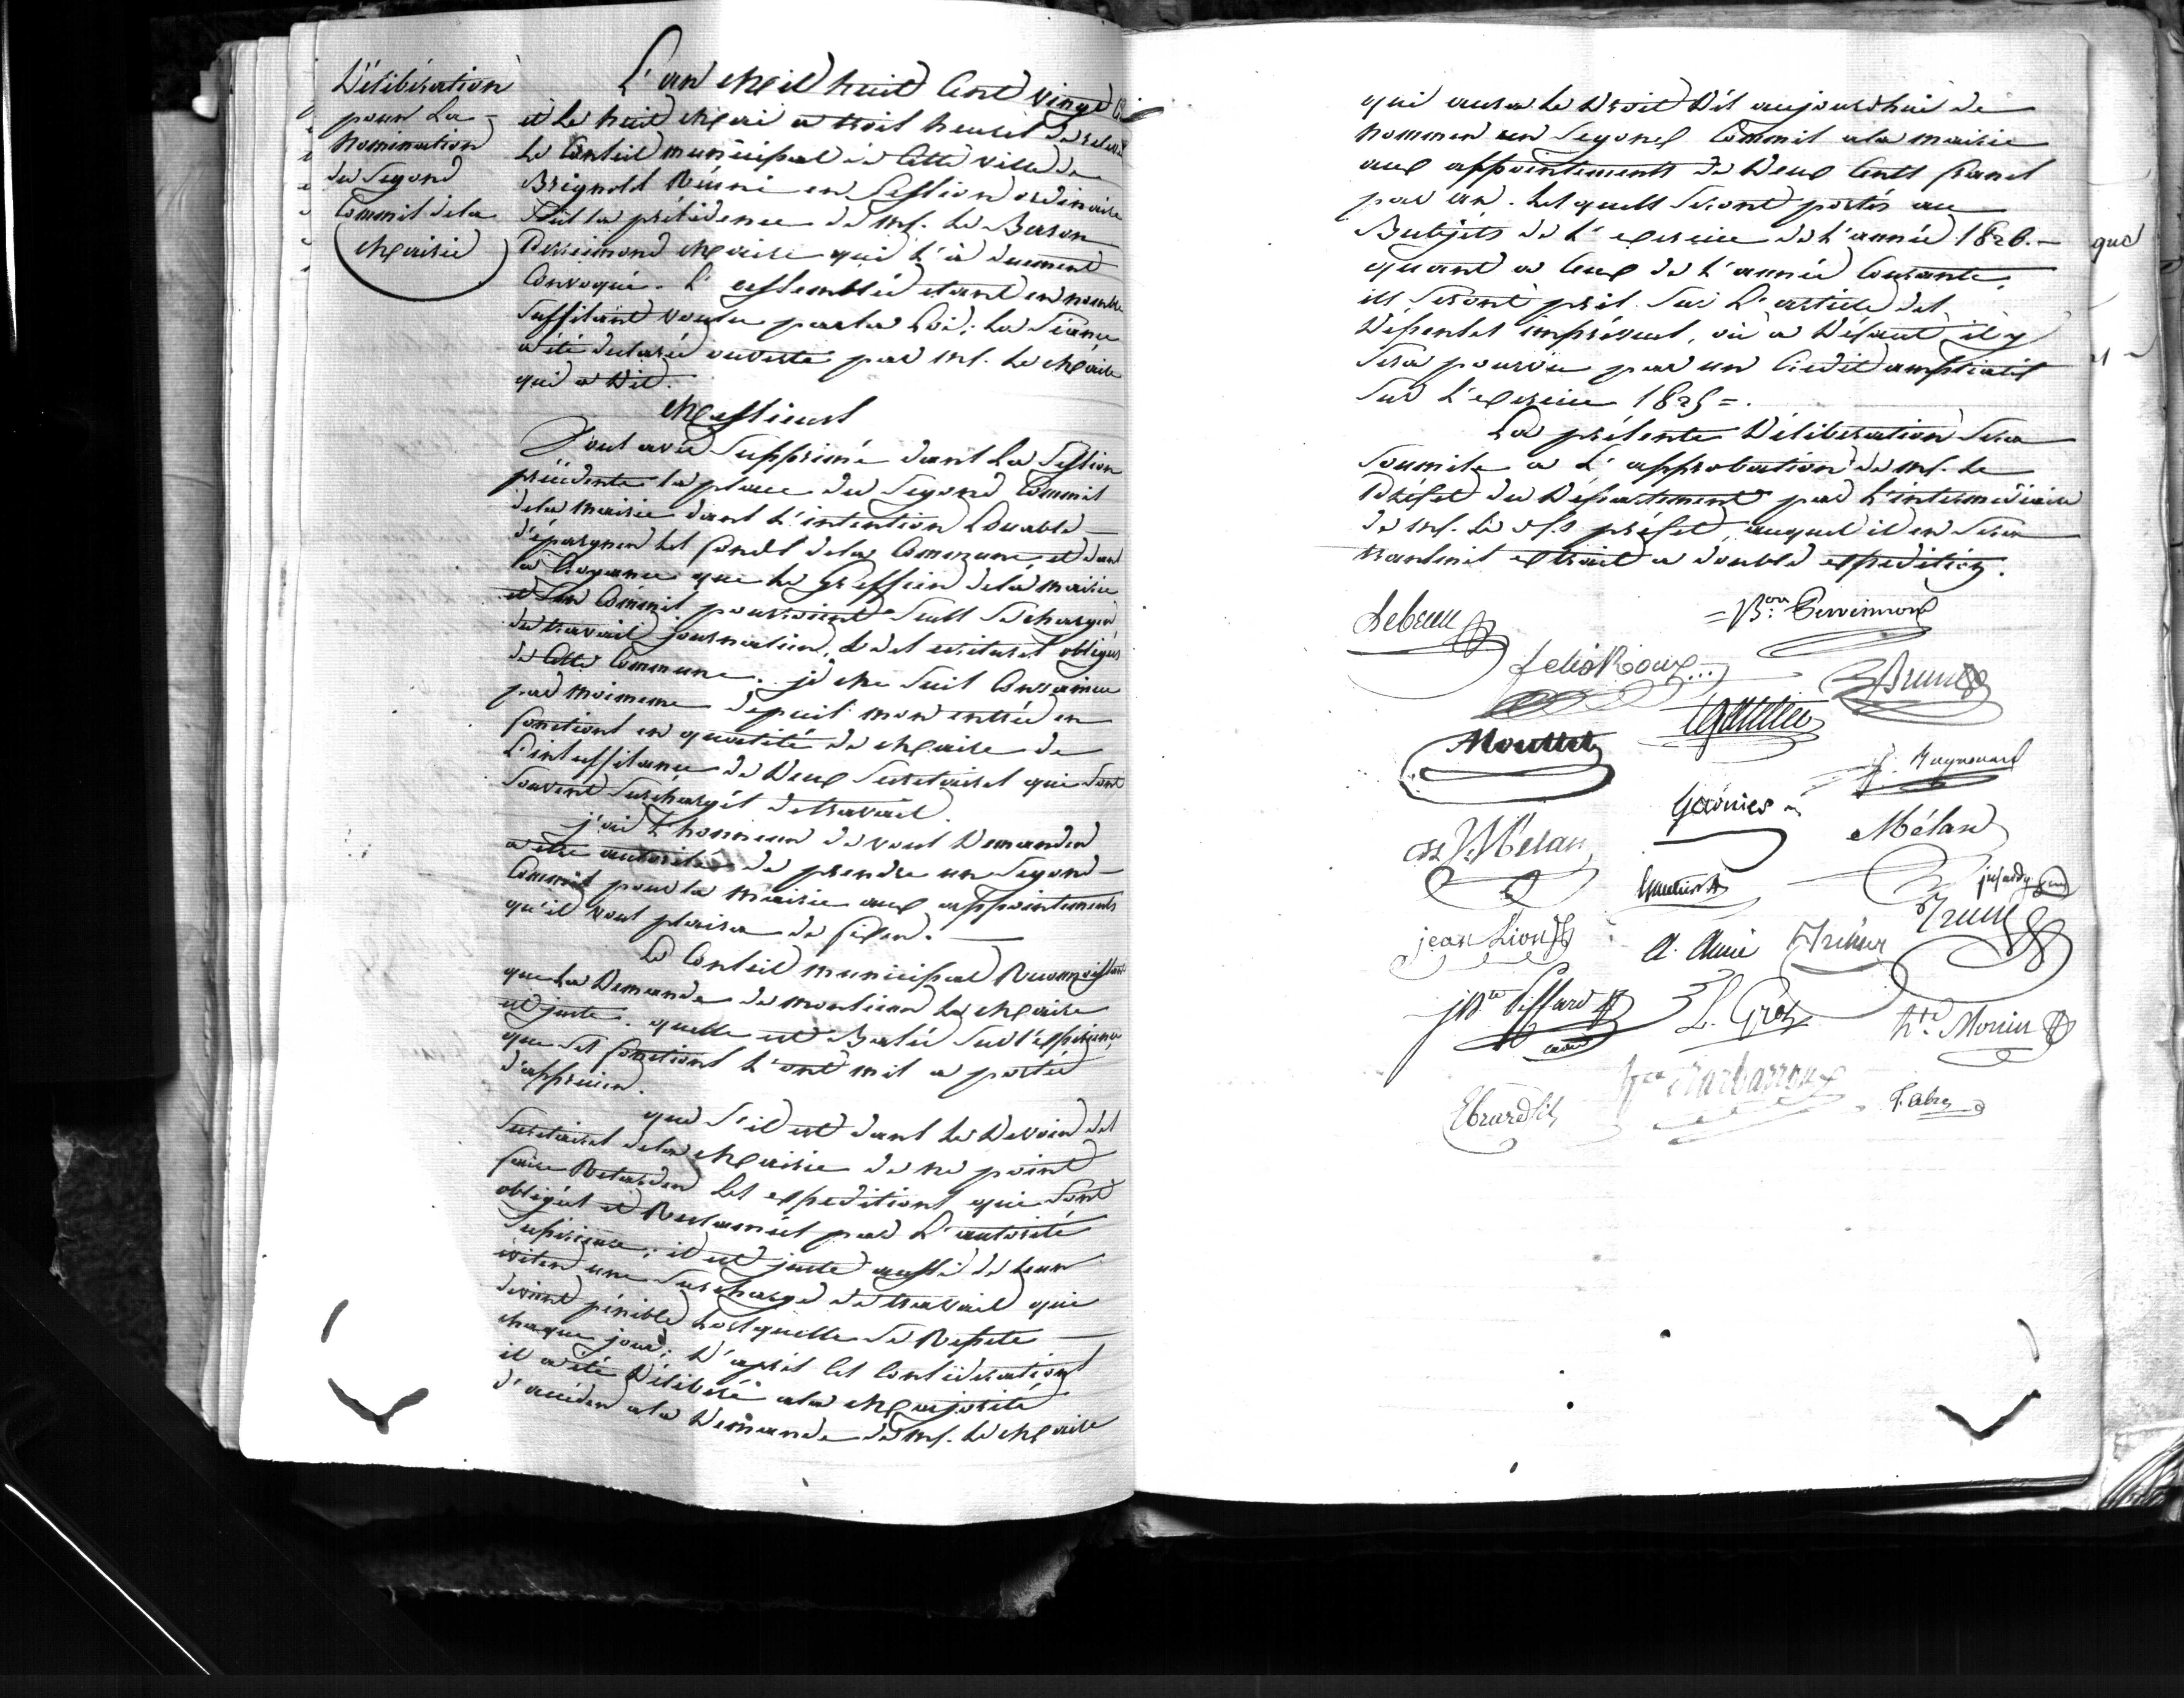 Déliberation
pour La
Nomination
du Segond
Commis dela
Mairie
L'an Mil huit Cent vingt
et Le huit Mai a trois heures de relevée
Le Conseil municipal de Cette ville de
Brignoles Réuni en Session ordinaire
Sous la présidence de Mr. Le Baron
Perrimond Maire qui l'à duement
Convoqué. L'assemblée etant en nombre
suffisant voulu par la Loi; La Séance
a été declarée ouverte par Mr. Le Maire
qui a Dit.
Messieurs
Vous avés Supprimé dans La Session
précédente la place du Segond Commis
dela mairie dans L'intention Louable
d'épargner Les fonds dela Commune et dans
la Croyance que Le Greffier dela mairie
et Son Commis pourroient Seuls Se charger
du travail journalier, & des écritures obligées
de Cette Commune. je Me Suis Convaincu
par moimeme depuis mon entrée en
fonctions en qualité de Maire de
L'insuffisance de Deux Secretaires qui Sont
Souvent Surchargés de travail.
j'ai L'honneur de vous Demander
a être autorisé de prendre un Segond
Commis pour la mairie aux appointements
qu'il vous plaira de fixer.
Le Conseil municipal Reconnoissant
que La Demande de monsieur Le Maire
est juste. quelle est Basée Sur l'experience
que Ses fonctions L'ont mis a portée
d'apprecier.
que S'il est dans Le Devoir des
Secretaires dela Mairie de ne point
faire Retarder Les expeditions qui Sont
obligées et Reclamées par L'autorité
Superieure; il est juste aussi de Leur
eviter une Surcharge de travail qui
devient pénible Lorsquelle Se Repete
chaque jour; D'après Ces Considerations
il a été Déliberé ala Majorité
d'acceder ala Demande de Mr. Le Maire
qui aura Le Droit Dès aujourdhui de
nommer un Segond Commis ala mairie
aux appointements de Deux Cents francs
par an. Lesquels Seront portés au
Budjets de L'exercice de L'année 1826.
quant a Ceux de L'année Courante,
ils Seront pris Sur L'article des
Dépenses imprévues, où a Défaut il y
Sera pourvu par un Credit
Sur L'exercice 1825 =.
La présente Déliberation Sera
Soumise a L'approbation de Mr. Le
Préfet du Département par L'intermediaire
de Mr. Le S.s préfet, auquel il en Sera
transmis extrait a double expedition.
Lebrun
= Bon. Perrimond
felix Roux
Brun
Mouttet
Raynouard
Garnier
Mélan
jean Lion
A. Amic
L. Gros
Hte. Monier
Barbarroux
Ebrard fils
Fabre
que